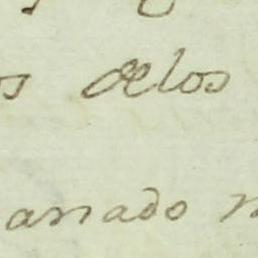 s delos
anado